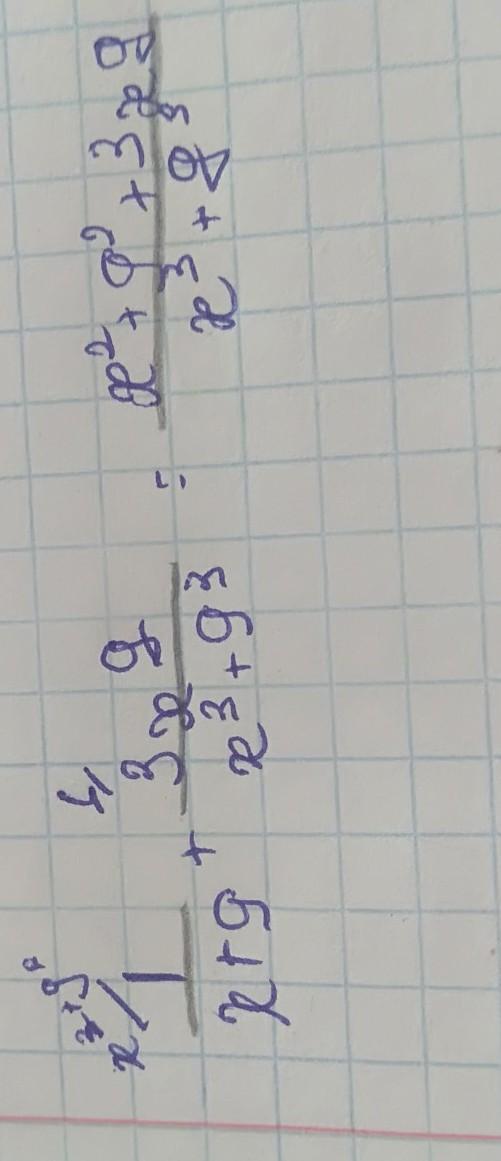 1/(x+y) + 3xy/(x³+y³) = (x²+y²+3xy)/(x³+y³)